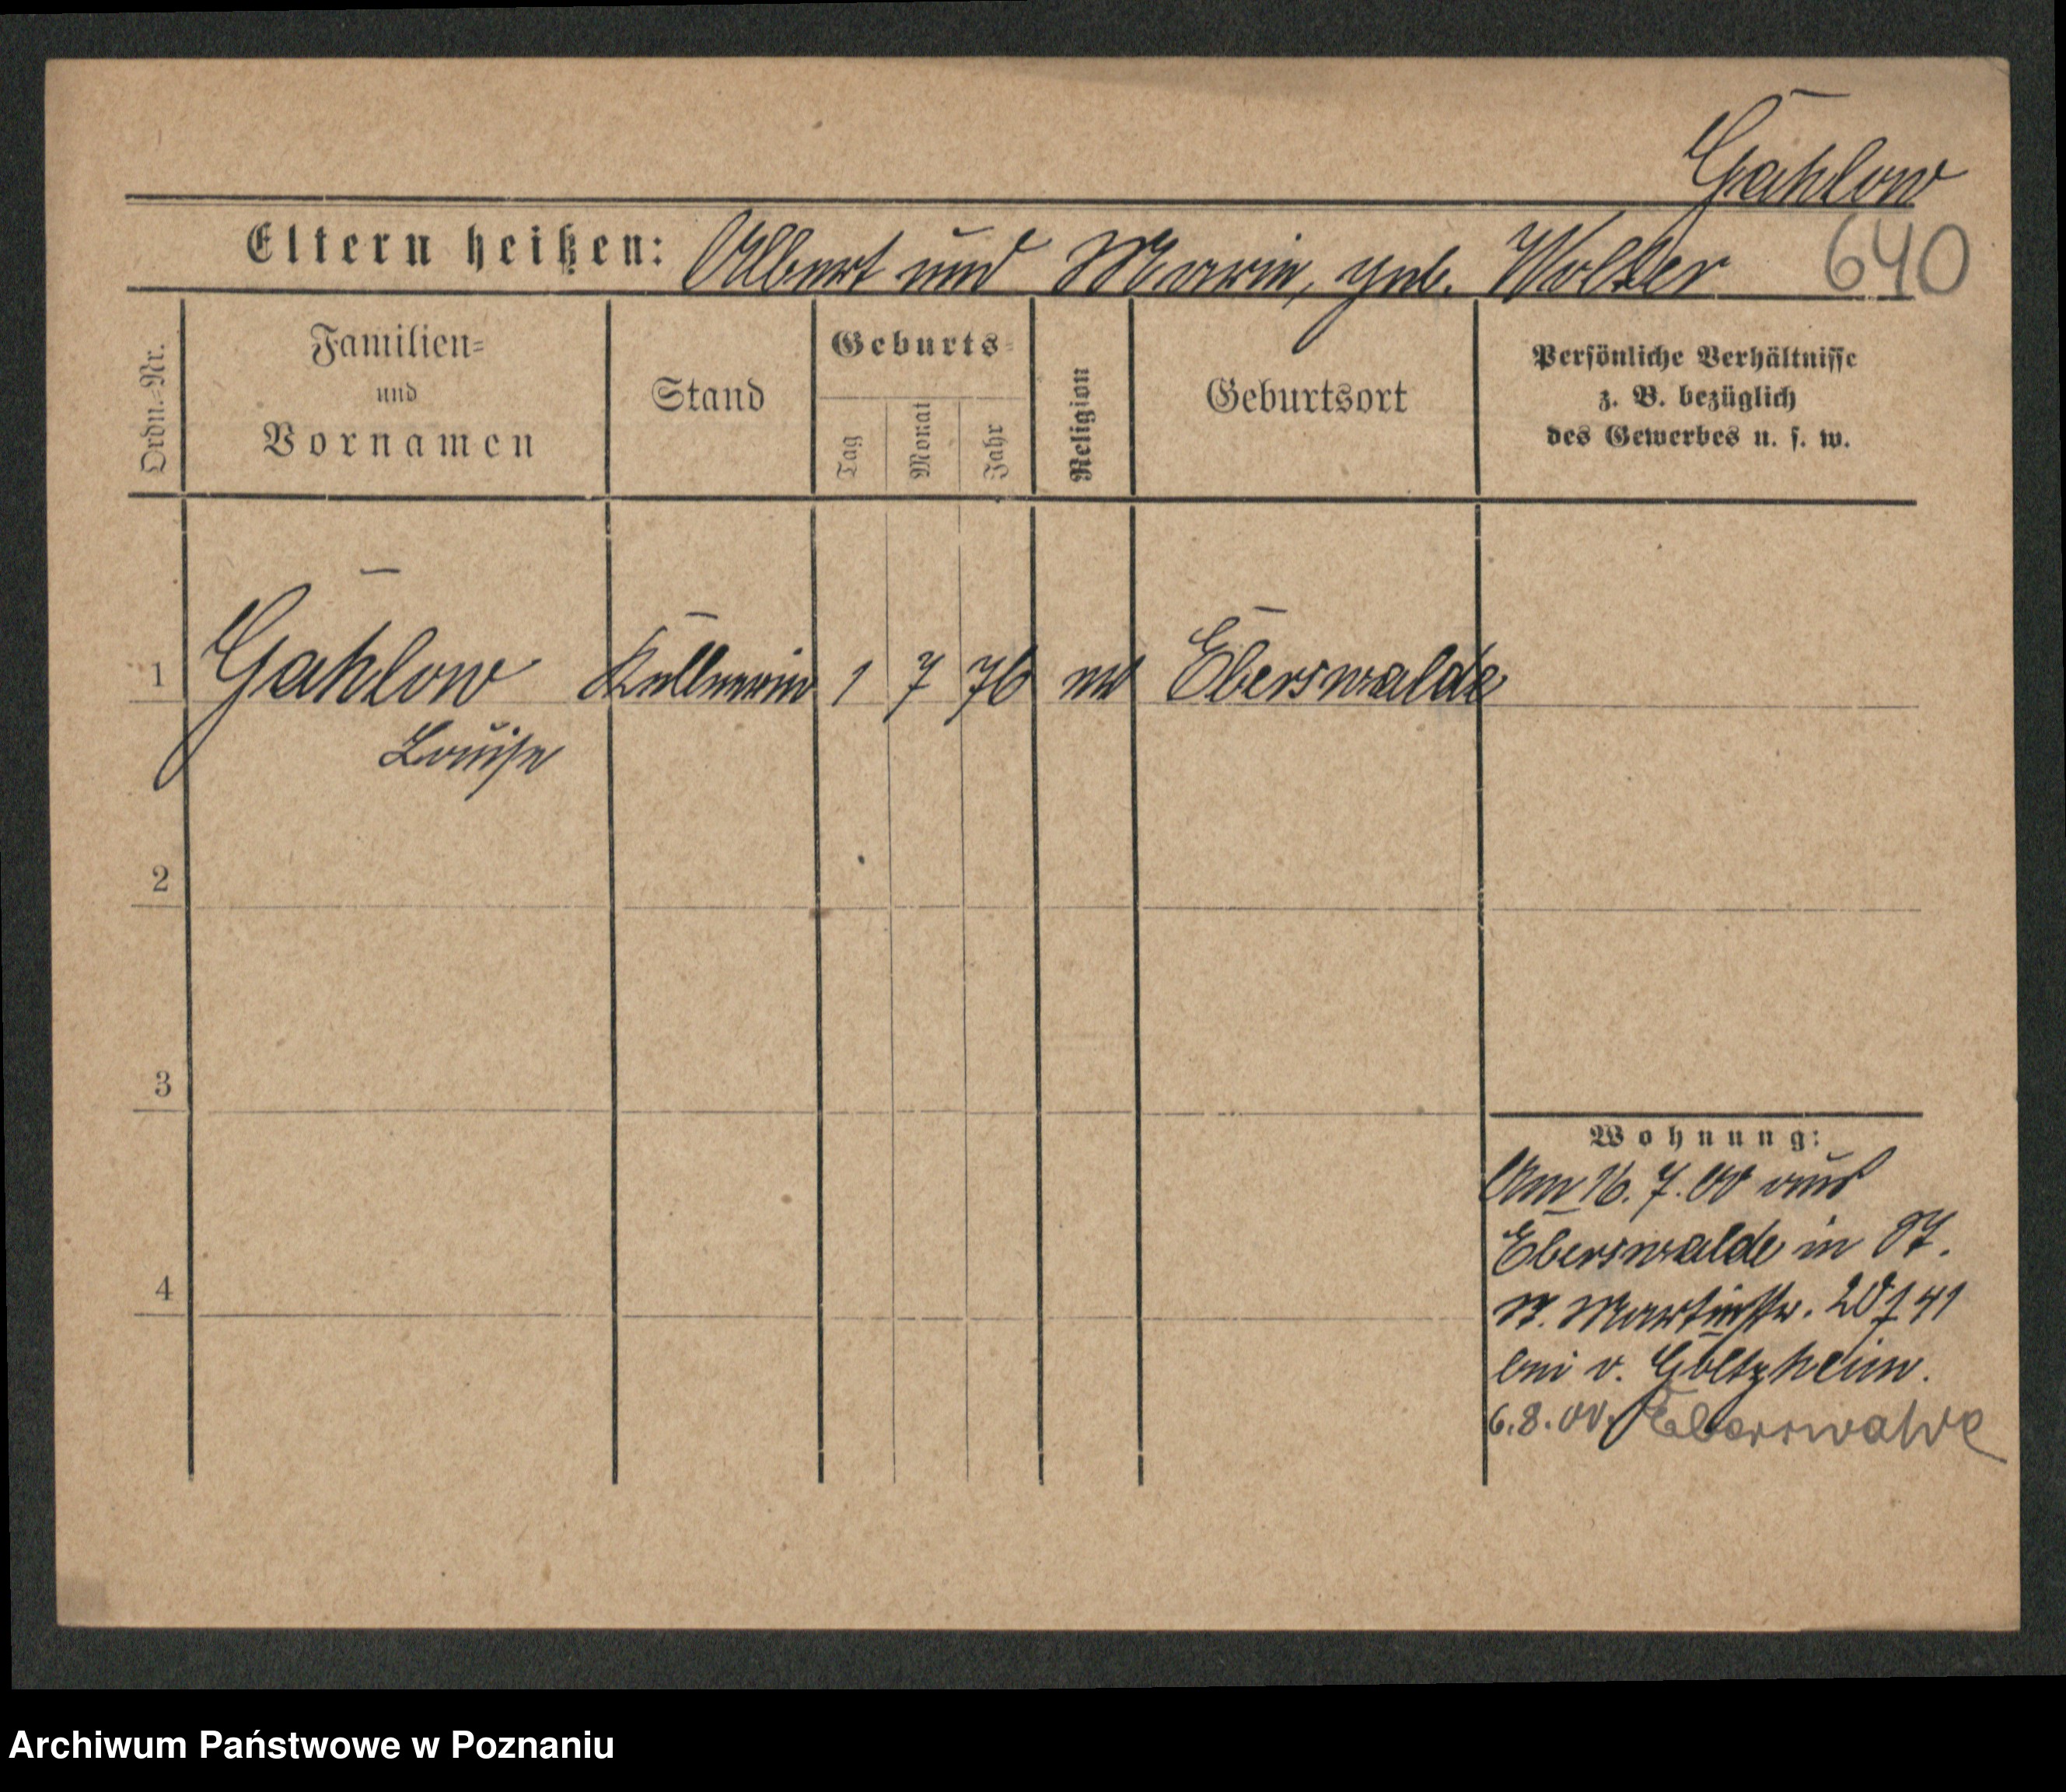 Gahlow
Eltern heißen: Albert und Marie, geb. Wolter 640
Ordn.-Nr.
Familien-
und
Vornamen
Stand
Geburts-
Tag
Monat
Jahr
Religion
Geburtsort
Persönliche Verhältnisse
z. B. bezüglich
des Gewerbes u. s. w.
1 Gahlow Kellnerin 1 7 76 ev Eberswalde
Louise
2
3
4
Wohnung:
Am 16. 7. 00 aus
Eberswalde in
St. Martinstr. 41
bei v. Goltzheim.
6.8.00. Eberswalde
Archiwum Państwowe w Poznaniu